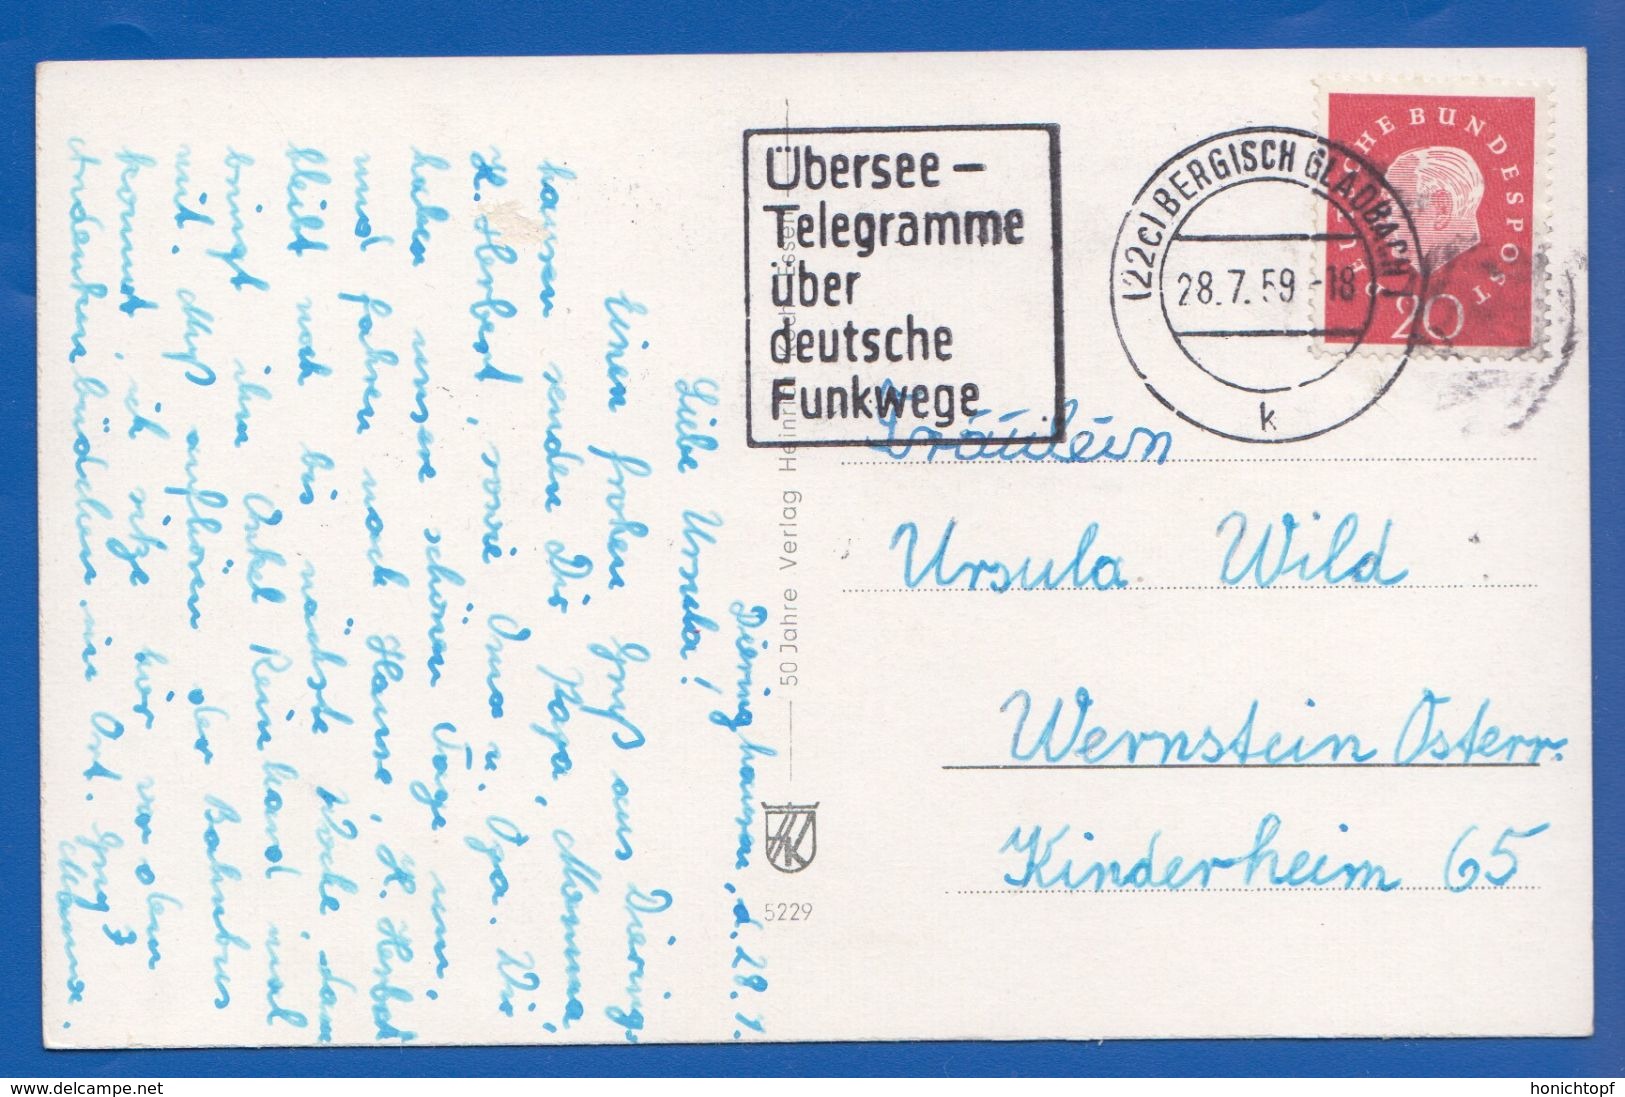 Dieringhausen, d. 28.7.
Liebe Ursula!
Einen frohen Gruß aus Diering-
hausen senden Dir Papa, Mamma,
H. Herbert, sowie Oma u. Opa. Wir
haben unsere schönen Tage um,
und fahren nach Hause, H. Herbert
bleibt noch bis nächste Woche, dann
bringt ihn Onkel Reinhard mal
mit. Muß aufhören der Bahnbus
kommt, ich sitze hier vor dem
Andenkenbüdchen im Ort. Gruß
Mamma.
50 Jahre Verlag Heinrich Koch, Essen
5229
Übersee-
Telegramme
über
deutsche
Funkwege
(22c) BERGISCH GLADBACH 1
28.7.59-18
k
DEUTSCHE BUNDESPOST
20
Fräulein
Ursula Wild
Wernstein Österr.
Kinderheim 65
www.delcampe.net
honichtopf